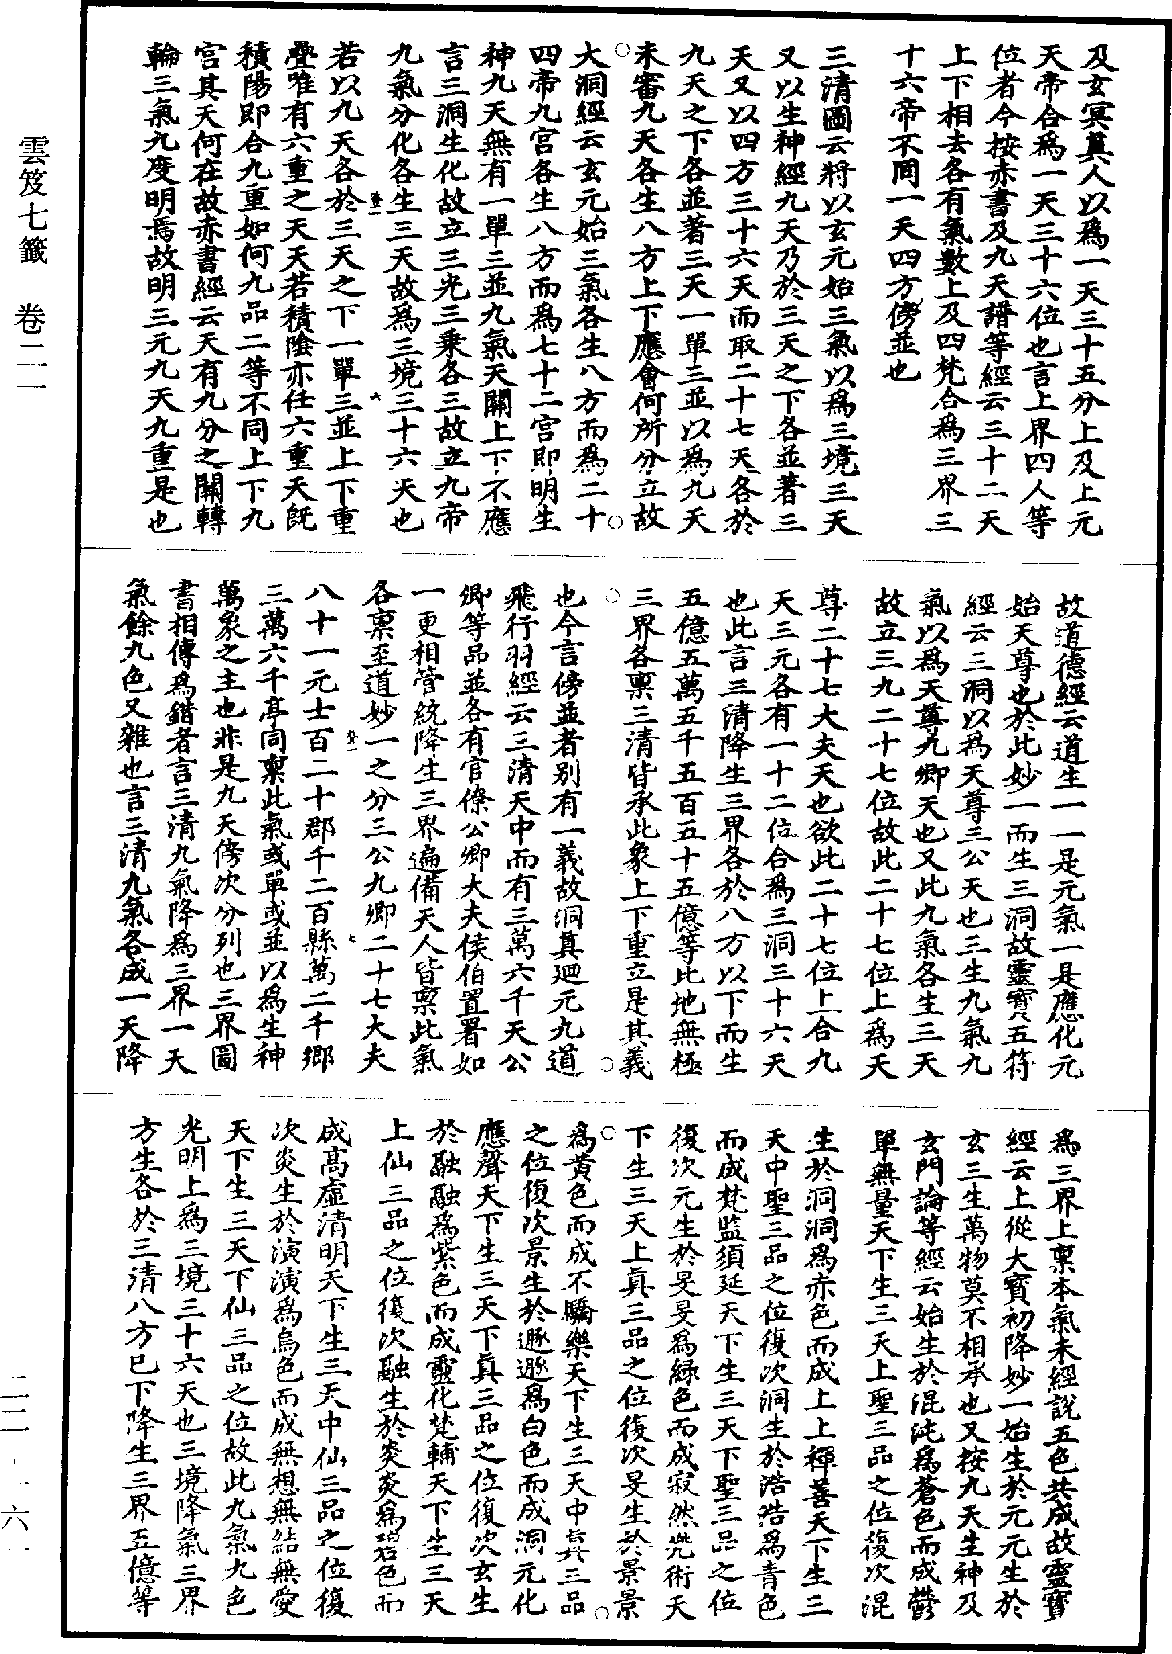 雲笈七籤　卷二一
及玄冥真人以爲一天三十五分上及上元
天帝合爲一天三十六位也言上界四人等
位者今按赤書及九天譜等經云三十二天
上下相去各有氣數上及四梵合爲三界三
十六帝不同一天四方傍並也
三清圖云將以玄元始三氣以爲三境三天
又以生神經九天乃於三天之下各並著三
天又以四方三十六天而取二十七天各於
九天之下各並著三天一單三並以爲九天
未審九天各生八方上下應會何所分立故
大洞經云玄元始三氣各生八方而爲二十
四帝九宮各生八方而爲七十二宮即明生
神九天無有一單三並九氣天關上下不應
言三洞生化故立三光三乘各三故立九帝
九氣分化各生三天故爲三境三十六天也
若以九天各於三天之下一單三並上下重
疊唯有六重之天天若積陰亦任六重天旣
積陽即合九重如何九品二等不同上下九
宮其天何在故赤書經云天有九分之關轉
輪三氣九度明焉故明三元九天九重是也
故道德經云道生一一是元氣一是應化元
始天尊也於此妙一而生三洞故靈寶五符
經云三洞以爲天尊三公天也三生九氣九
氣以爲天尊九卿天也又此九氣各生三天
故立三九二十七位故此二十七位上爲天
尊二十七大夫天也欲此二十七位上合九
天三元各有一十二位合爲三洞三十六天
也此言三清降生三界各於八方以下而生
五億五萬五千五百五十五億等此地無極
三界各稟三清皆承此象上下重立是其義
也今言傍並者別有一義故洞真廻元九道
飛行羽經云三清天中而有三萬六千天公
卿等品並各有官僚公卿大夫侯伯置署如
一更相管統降生三界遍備天人皆稟此氣
各稟至道妙一之分三公九卿二十七大夫
八十一元士百二十郡千二百縣萬二千鄉
三萬六千亭同稟此氣或單或並以爲生神
萬象之主也非是九天傍次分列也三界圖
書相傳爲錯者言三清九氣降爲三界一天
氣餘九色又雜也言三清九氣各成一天降
爲三界上稟本氣未經說五色共成故靈寶
經云上從大寶初降妙一始生於元元生於
玄三生萬物莫不相承也又按九天生神及
玄門論等經云始生於混沌爲蒼色而成鬱
單無量天下生三天上聖三品之位復次混
生於洞洞爲赤色而成上上禪善天下生三
天中聖三品之位復次洞生於浩浩爲青色
而成梵監須延天下生三天下聖三品之位
復次元生於旻旻爲綠色而成寂然兜術天
下生三天上眞三品之位復次旻生於景景
爲黃色而成不驕樂天下生三天中眞三品
之位復次景生於遯遯爲白色而成洞元化
應聲天下生三天下眞三品之位復次玄生
於融融爲紫色而成靈化梵輔天下生三天
上仙三品之位復次融生於炎炎爲碧色而
成高虛清明天下生三天中仙三品之位復
次炎生於演演爲烏色而成無想無結無愛
天下生三天下仙三品之位故此九氣九色
光明上爲三境三十六天也三境降氣三界
方生各於三清八方已下降生三界五億等